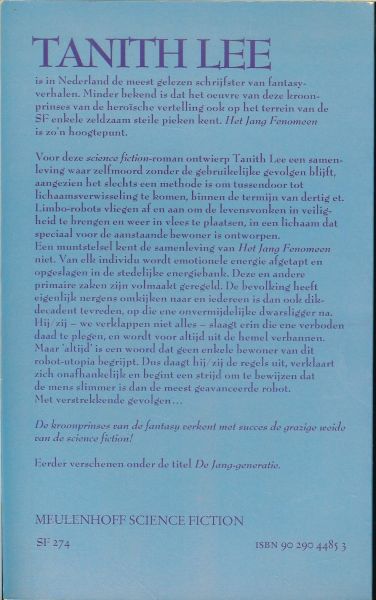 TANITH LEE
is in Nederland de meest gelezen schrijfster van fantasy-
verhalen. Minder bekend is dat het oeuvre van deze kroon-
prinses van de heroïsche vertelling ook op het terrein van de
SF enkele zeldzaam steile pieken kent. Het Jang Fenomeen
is zo'n hoogtepunt.
Voor deze science fiction-roman ontwierp Tanith Lee een samen-
leving waar zelfmoord zonder de gebruikelijke gevolgen blijft,
aangezien het slechts een methode is om tussendoor tot
lichaamsverwisseling te komen, binnen de termijn van dertig et.
Limbo-robots vliegen af en aan om de levensvonken in veilig-
heid te brengen en weer in vlees te plaatsen, in een lichaam dat
speciaal voor de aanstaande bewoner is ontworpen.
Een muntstelsel kent de samenleving van Het Jang Fenomeen
niet. Van elk individu wordt emotionele energie afgetapt en
opgeslagen in de stedelijke energiebank. Deze en andere
primaire zaken zijn volmaakt geregeld. De bevolking heeft
eigenlijk nergens omkijken naar en iedereen is dan ook dik-
decadent tevreden, op die ene onvermijdelijke dwarsligger na.
Hij/zij – we verklappen niet alles – slaagt erin die ene verboden
daad te plegen, en wordt voor altijd uit de hemel verbannen.
Maar 'altijd' is een woord dat geen enkele bewoner van dit
robot-utopia begrijpt. Dus daagt hij/zij de regels uit, verklaart
zich onafhankelijk en begint een strijd om te bewijzen dat
de mens slimmer is dan de meest geavanceerde robot.
Met verstrekkende gevolgen...
De kroonprinses van de fantasy verkent met succes de grazige weide
van de science fiction!
Eerder verschenen onder de titel De Jang-generatie.
MEULENHOFF SCIENCE FICTION
SF 274
ISBN 90 290 4485 3